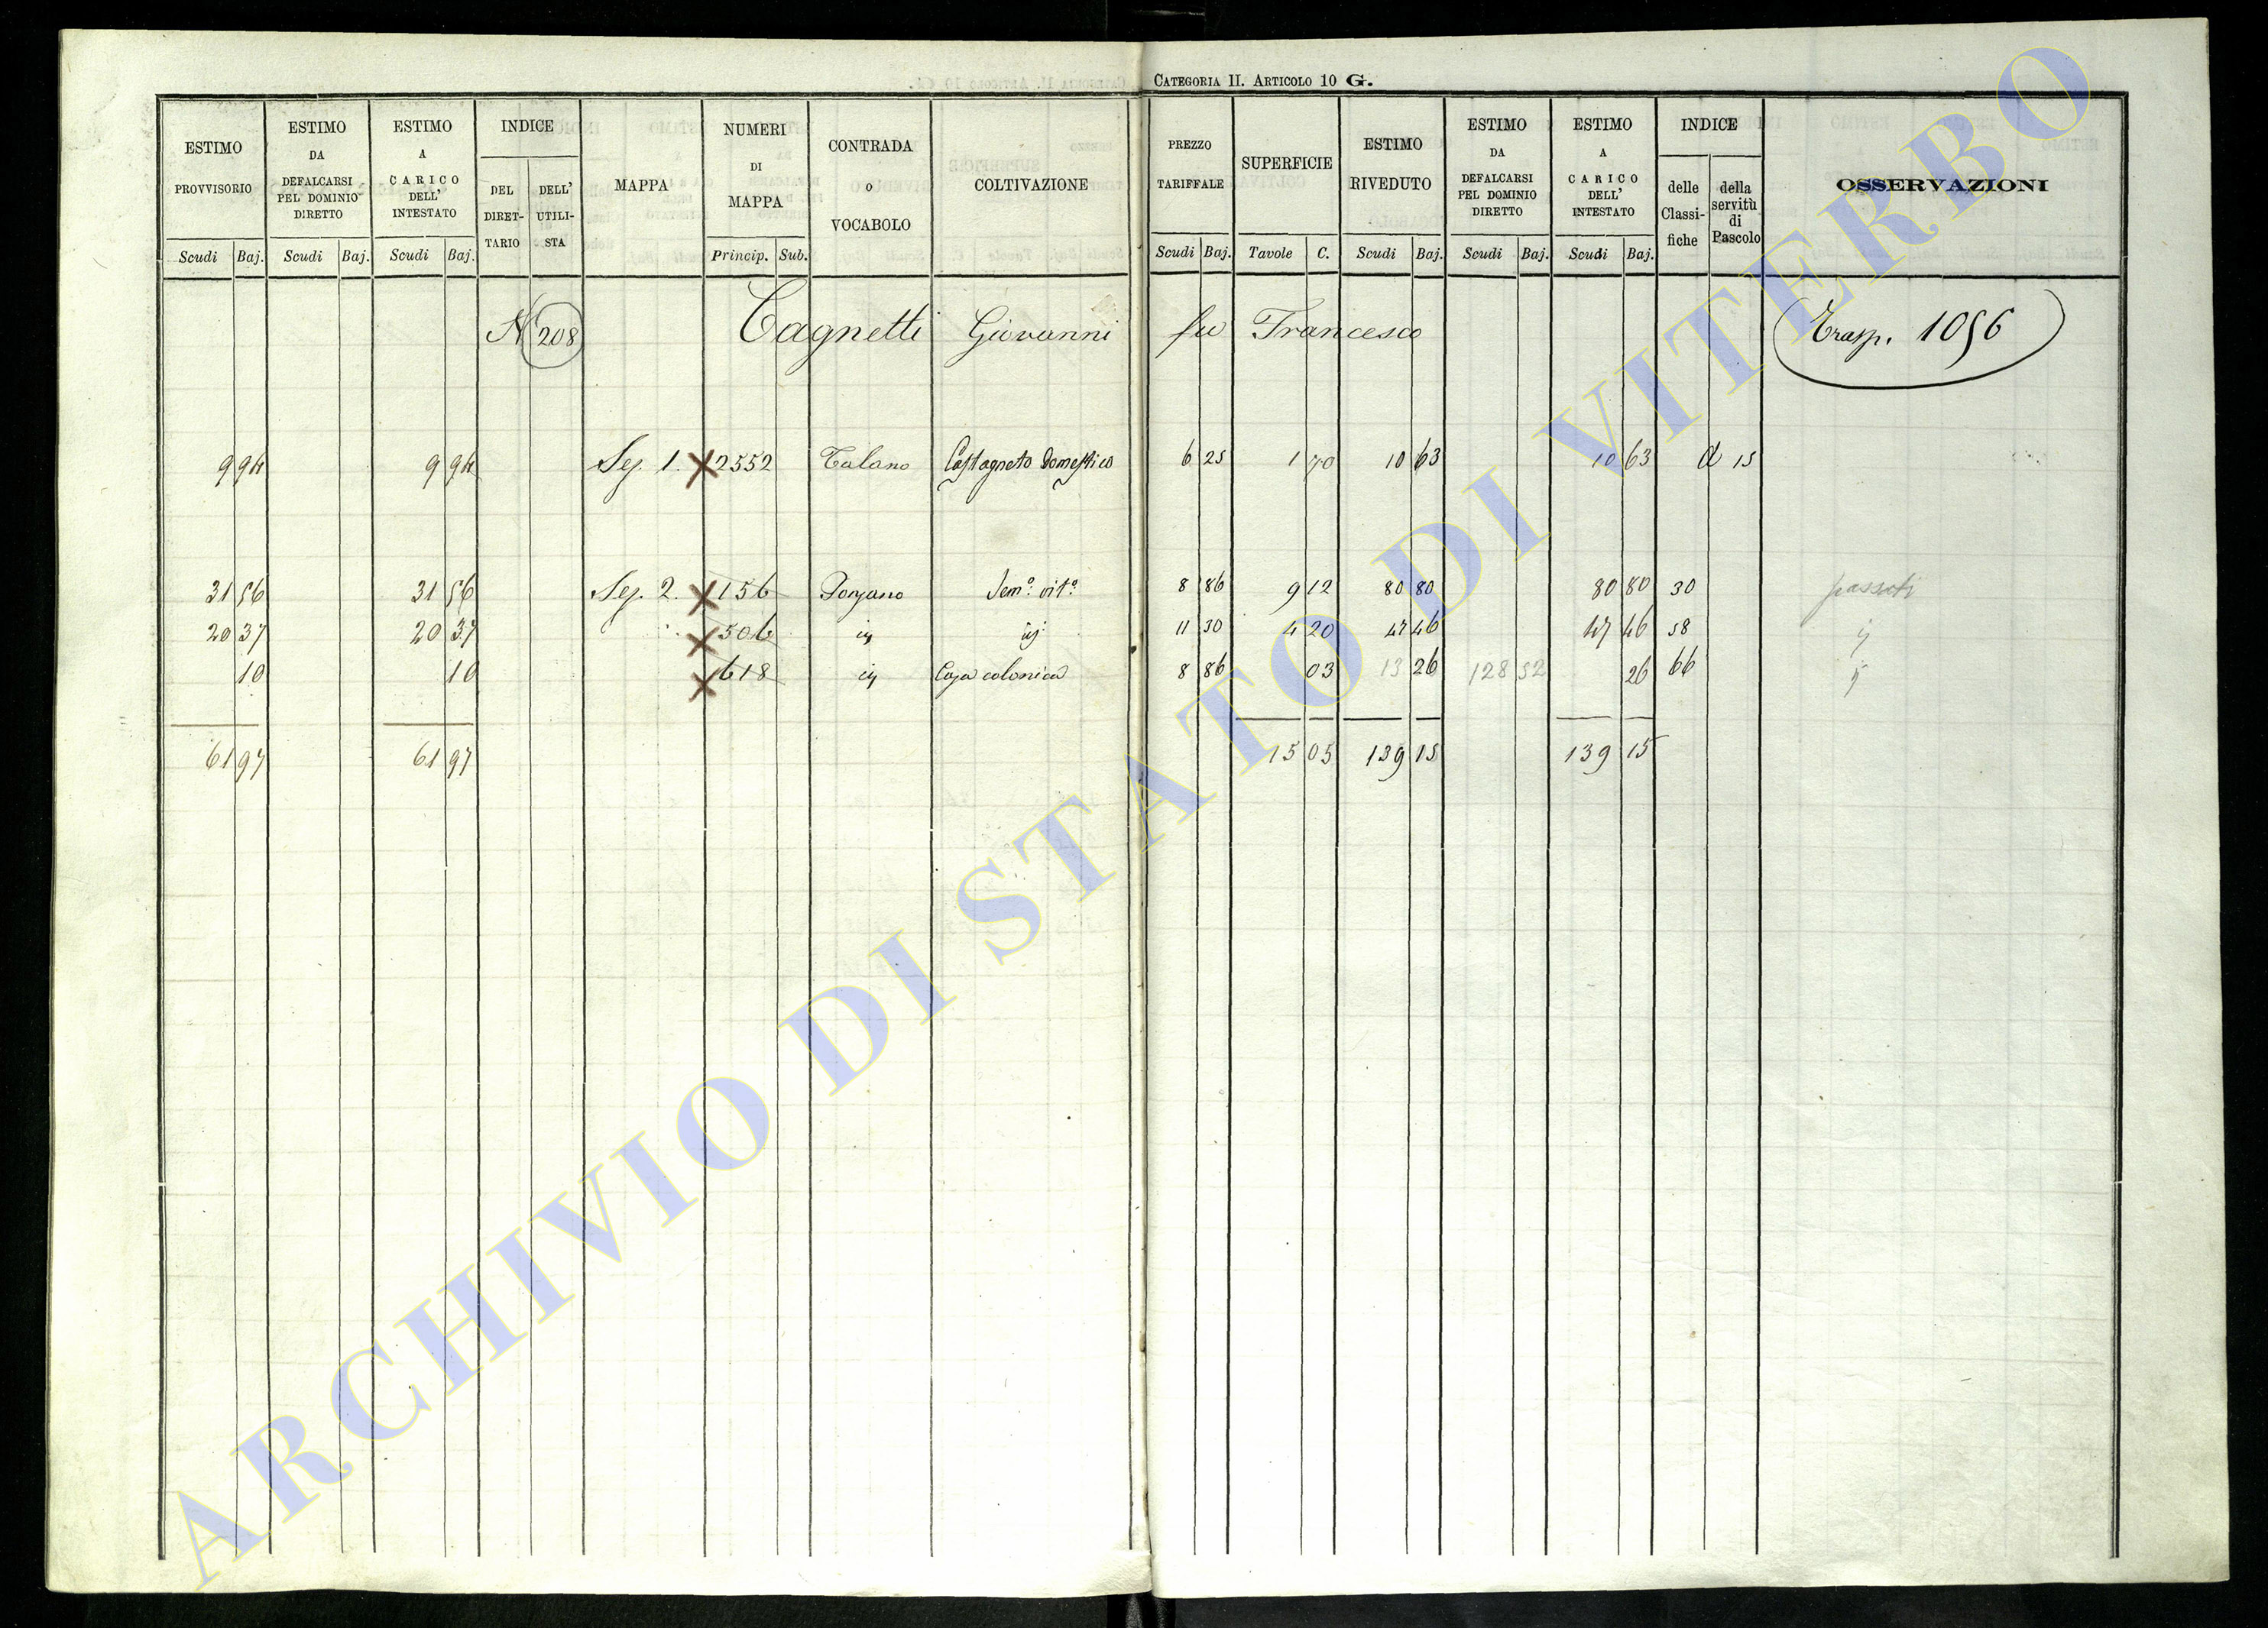 CATEGORIA II. ARTICOLO 10 G.
ESTIMO PROVVISORIO
ESTIMO DA DEFALCARSI PEL DOMINIO DIRETTO
ESTIMO A CARICO DELL' INTESTATO
INDICE
DEL DIRET-TARIO
DELL' UTILI-STA
MAPPA
NUMERI DI MAPPA
CONTRADA o VOCABOLO
COLTIVAZIONE
PREZZO TARIFFALE
SUPERFICIE
ESTIMO RIVEDUTO
ESTIMO DA DEFALCARSI PEL DOMINIO DIRETTO
ESTIMO A CARICO DELL' INTESTATO
INDICE
delle Classi-fiche
della servitù di Pascolo
OSSERVAZIONI
Scudi Baj. Scudi Baj. Scudi Baj. Princip. Sub. Scudi Baj. Tavole C. Scudi Baj. Scudi Baj. Scudi Baj.
N 208 Cagnetti Giovanni fu Francesco Trasp. 1056
9 94 9 94 Sez. 1. 2552 Talano Castagneto Domestico 6 25 1 70 10 63 10 63 d 15
31 56 31 56 Sez. 2. 156 Ponzano Semo. vito. 8 86 9 12 80 80 80 80 30 passati
20 37 20 37 506 ij ij 11 30 4 20 47 46 47 46 58 ij
10 10 618 ij Casa colonica 8 86 03 13 26 128 52 26 66 ij
61 97 61 97 15 05 139 15 139 15
ARCHIVIO DI STATO DI VITERBO